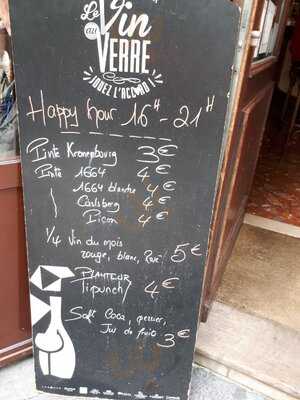 Le
Vin
au
VERRE
JOUEZ L'ACCORD
Happy hour 16H - 21H
Pinte Kronenbourg 3€
Pinte 1664 4€
1664 blanche 4€
Carlsberg 4€
Picon 4€
1/4 Vin du mois
rouge, blanc, Rosé 5€
PLANTEUR
Tipunch 4€
Soft Coca, perrier,
Jus de fruits 3€